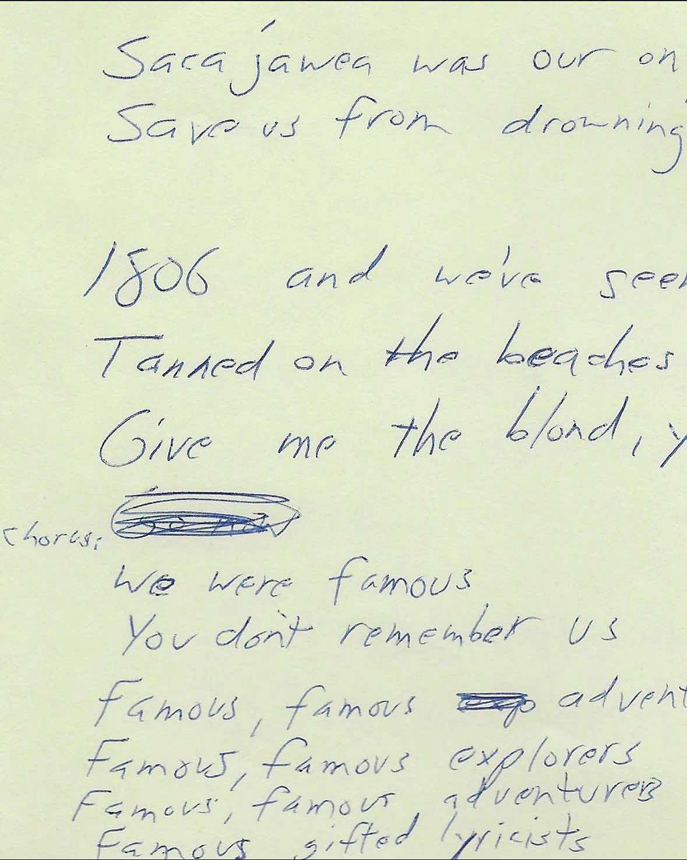 Sacajawea was our on
Save us from drowning
1806 and we've seen
Tanned on the beaches
Give me the blond, y
chorus:
We were famous
You don't remember us
Famous, famous advent
Famous, famous explorers
Famous, famous, adventurers
Famous gifted lyricists